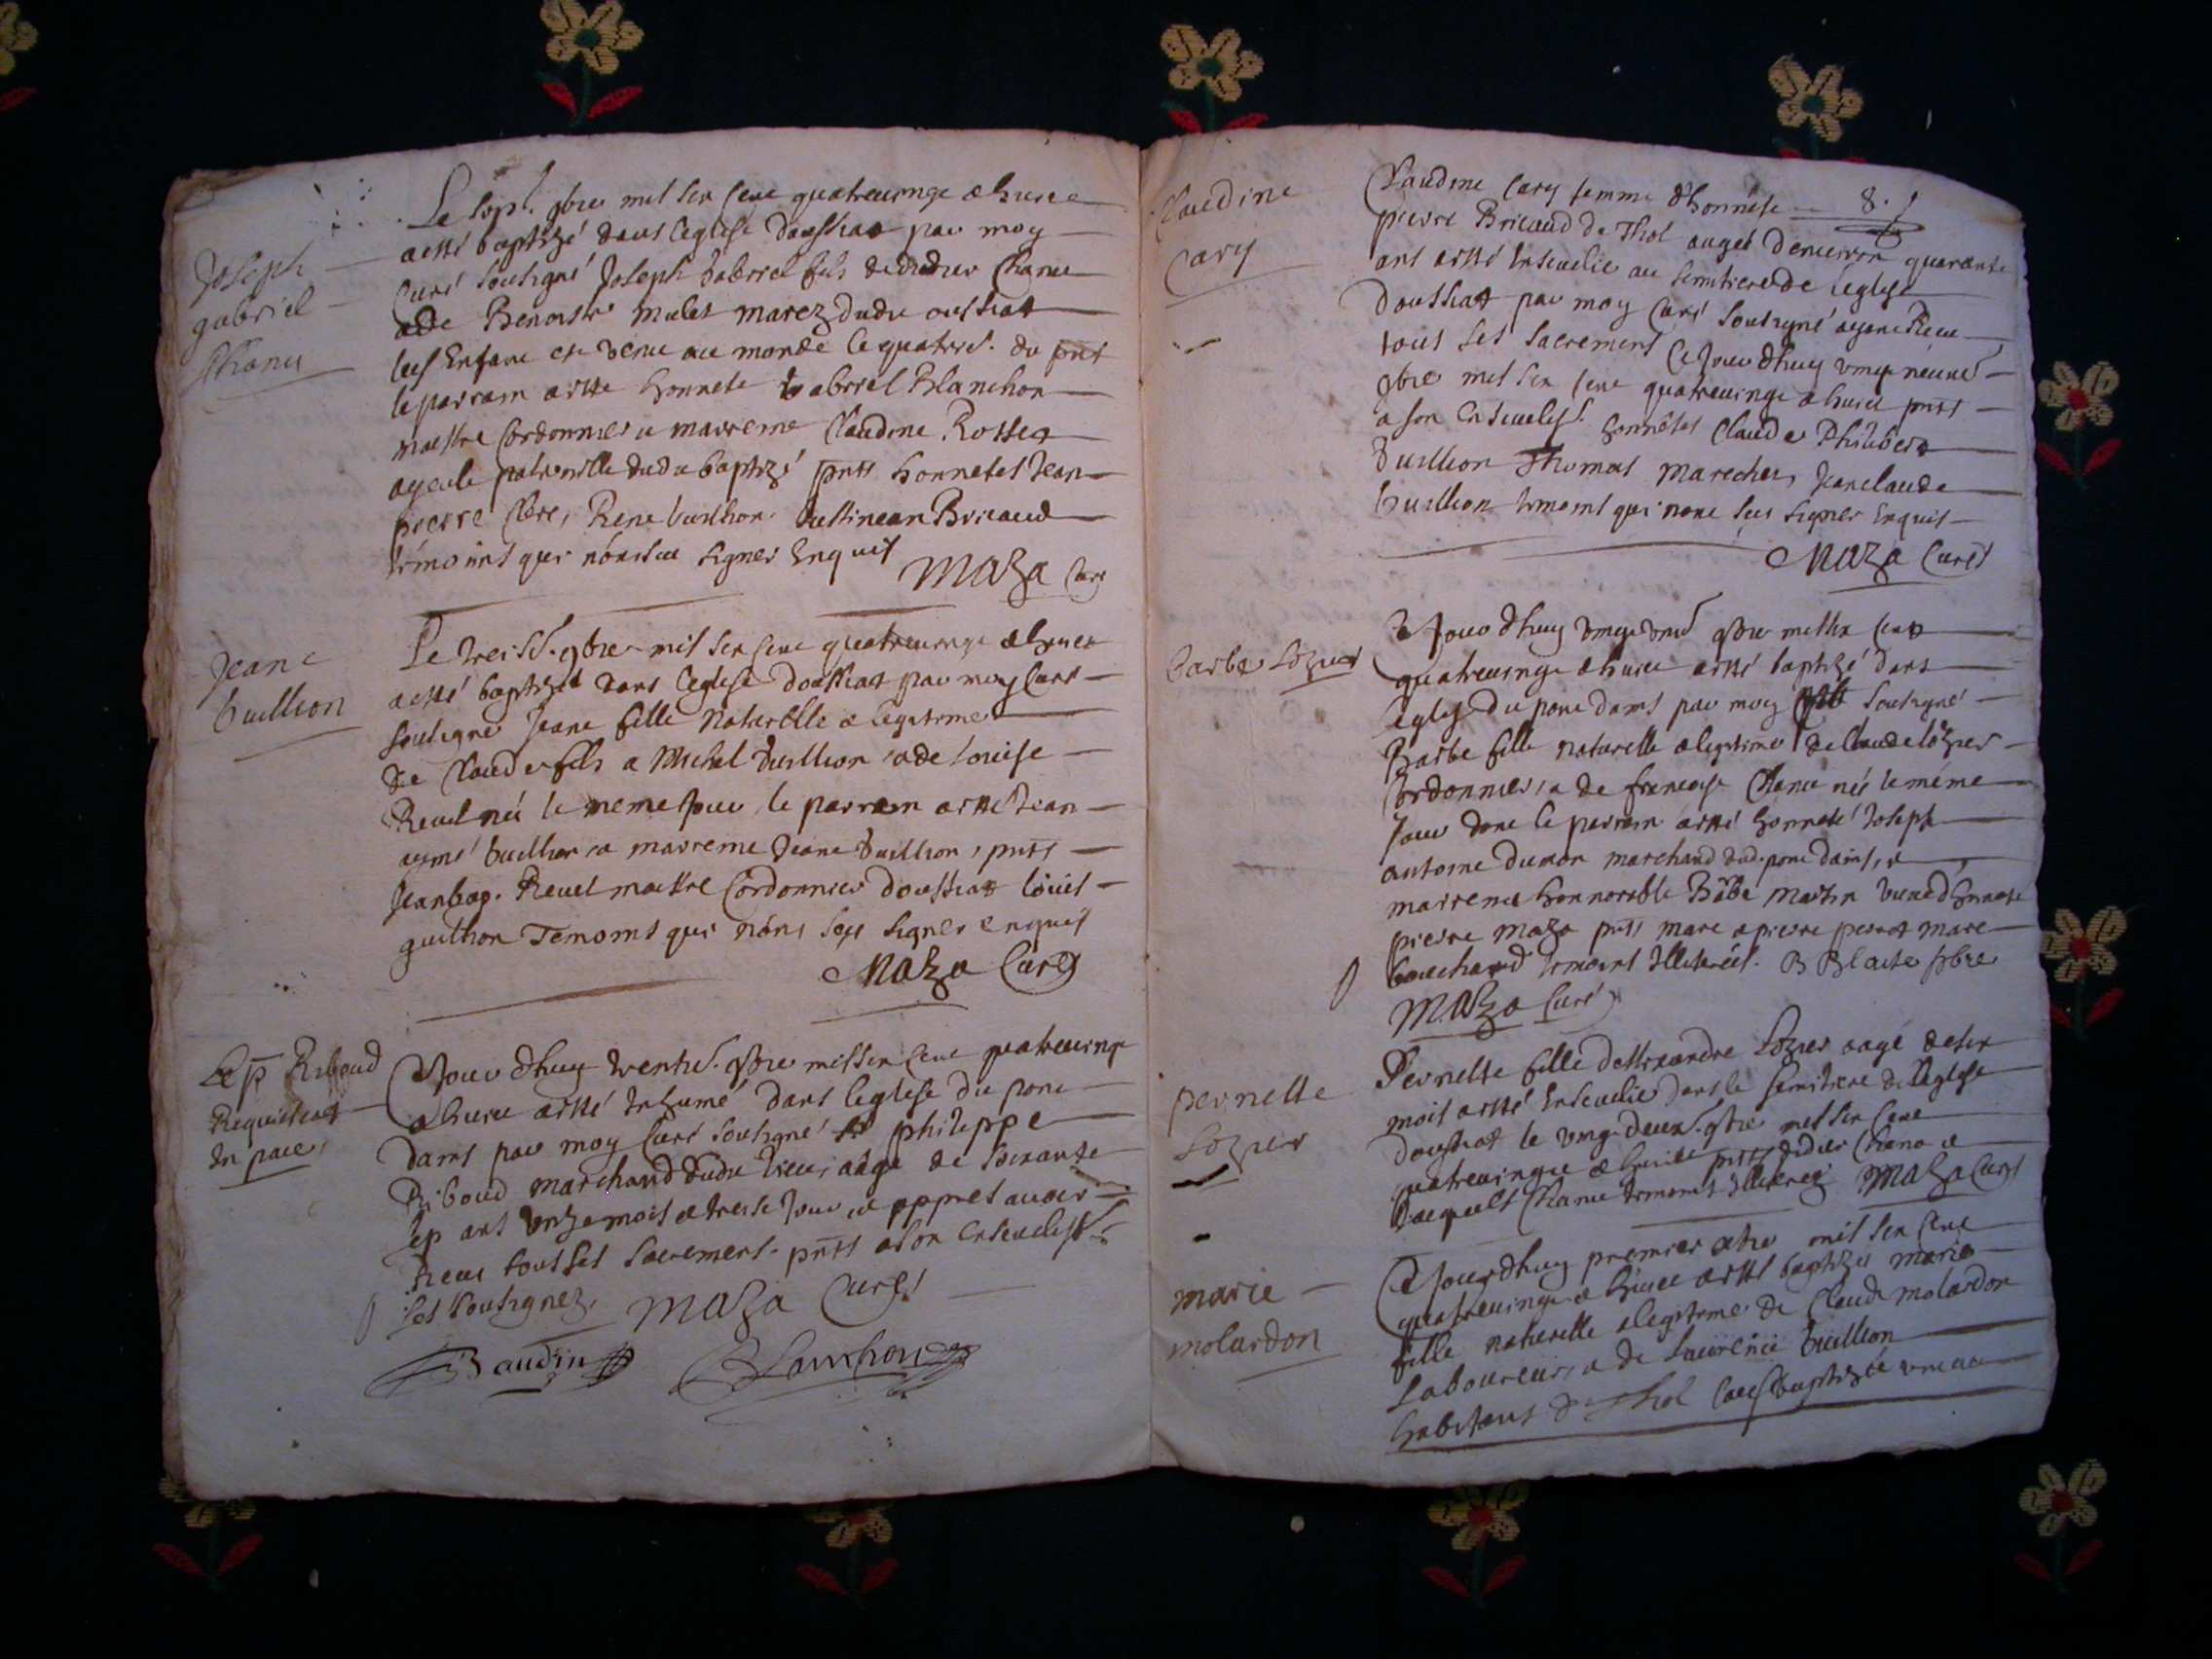 Joseph
gabriel
Chanu
Le sept. gbre mil six cent quatrevingt & huict
a esté baptizé dans l'eglise doussiat par moy
Curé soubsigné Joseph Gabriel fils de didier Chanu
& de Benoiste mulet mariez dudit oussiat
les Enfant est venu au monde le quatre. du pnt
le parrain a esté honnete Gabriel Blanchon
maistre Cordonnier & marreine Claudine Rosset
ayeule paternelle dudit baptizé pnts honnetes Jean
pierre Clere, Rene Vuillion Bricaud
témoins qui n'ont sceu signer Enquis
Maza Curé
Jeane
Vuillion
Le treise. gbre mil six cent quatrevingt & huict
a esté baptizée dans l'eglise doussiat par moy Curé
soubsigné Jeane fille naturelle & legitime
de Claude fils a Michel Vuillion & de Louise
Revel née le meme jour le parrain a esté Jean
aymé Vuillion & marreine Jeane Vuillion, pnts
Jeanbap. Revel maistre Cordonnier doussiat louis
guillion Temoins qui n'ont sceu signer enquis
Maza Curé
Le p Riboud
Requiescat
In pace
Ce Jour dhuy trente. gbre mil six cent quatrevingt
& huict a esté Inhumé dans l'eglise du pont
dains par moy Curé soubsigné philippe
Riboud marchand dudit lieu, aagé de soixante
sep ans unze mois & treise jour & appres avoir
receu tous ses sacrement. pnts a son Ensevelist.
les soubsignez. Maza Curé
Baudin Blanchon
8.
Claudine
Cary
Claudine Cary femme d'honneste
pierre Bricaud de Thol aagée denviron quarante
ans a esté Ensevelie au semitiere de l'eglise
doussiat par moy Curé soubsigné ayant Receu
tous ses sacrement Ce Jour dhuy vingt neuve
gbre mil six cent quatrevingt & huict pnts
a son Ensevelist. honnêtes Claude Philibert
Vuillion Thomas Marechet, Jeanclaude
Vuillion temoins qui n'ont sceu signer Enquis
Maza Curé
Barbe Lozier
Ce Jour dhuy vingt un gbre mil six cent
quatrevingt & huict a esté baptizé dans
leglise du pont dains par moy soubsigné
Barbe fille naturelle & legitime de Claude Lozier
Cordonnier, & de francoise Chanu née le méme
Jour dont le parrain a esté honneté Joseph
antoine dumon marchand dud. pont dains, &
marreine honnorable Barbe Martin veuve d'honneste
pierre Maza pnts marc & pierre perrot marc
bouchard temoins Illiterées. B Blaite pbre
Maza Curé
pernette
Lozier
Pernette fille d'Alixandre Lozier aagé de six
mois a esté Ensevelie dans le semitiere de l'eglise
doussiat le vingt deux. gbre mil six cent
quatrevingt & huict pnts didier Chanu &
Jacques Chanu temoins Illiterez Maza Curé
marie
molardon
Ce Jourdhuy premier xbre mil six cent
quatrevingt & huict a esté baptizée marie
fille naturelle & legitime de Claude molardon
Laboureur, & de Laurence Vuillion
habitans de Thol baptizée